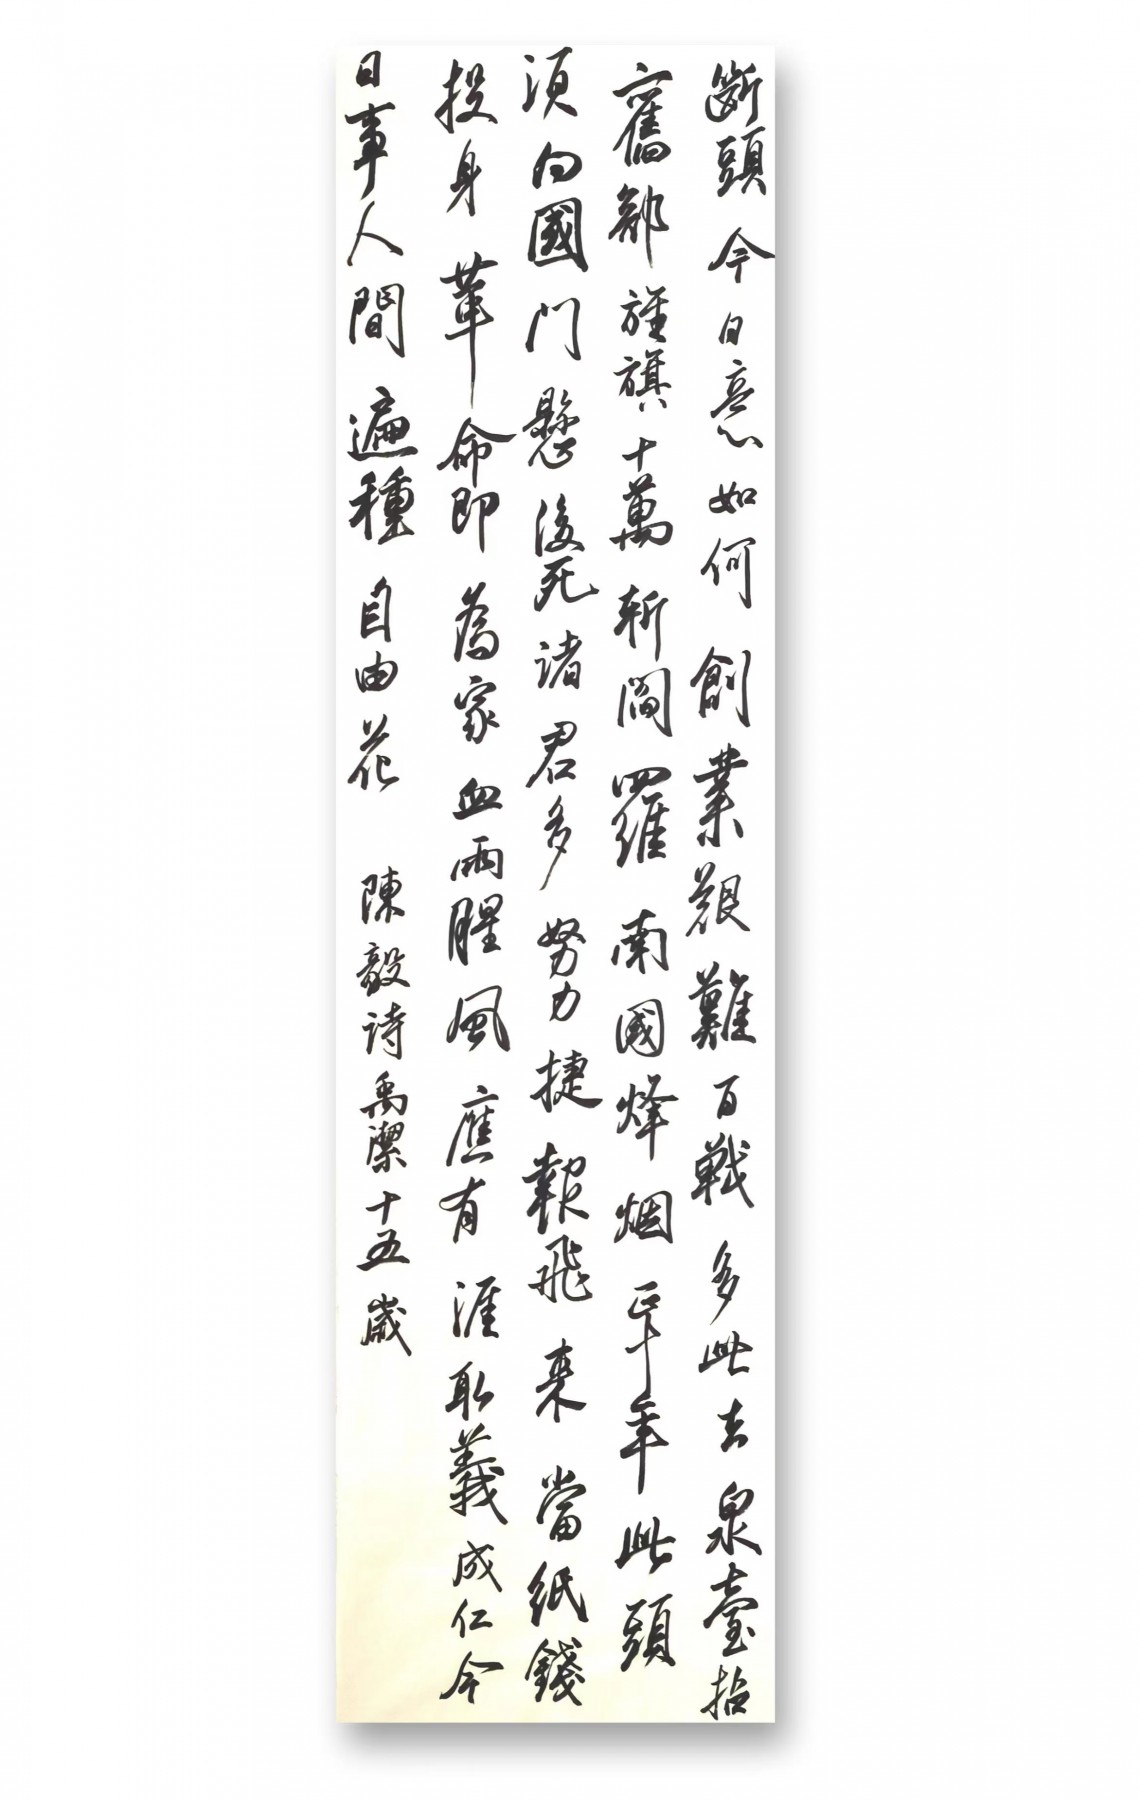 斷頭今日意如何創業艱難百戰多此去泉臺招
舊部旌旗十萬斬閻羅南國烽烟正十年此頭
須向國門懸後死諸君多努力捷報飛來當紙錢
投身革命即為家血雨腥風應有涯取義成仁今
日事人間遍種自由花 陳毅詩禹潔十五歲